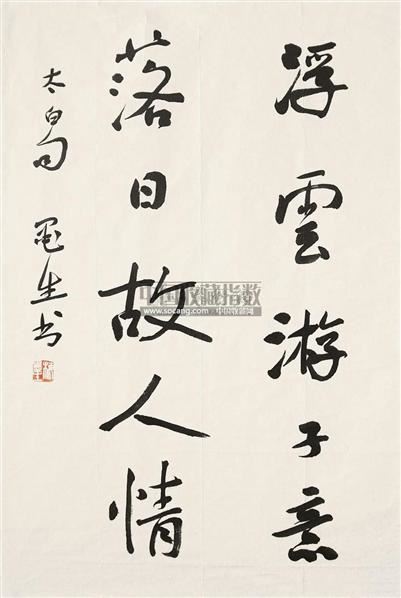 浮雲游子意
落日故人情
太白句 生书
中国收藏指数
www.socang.com · 中国收藏网